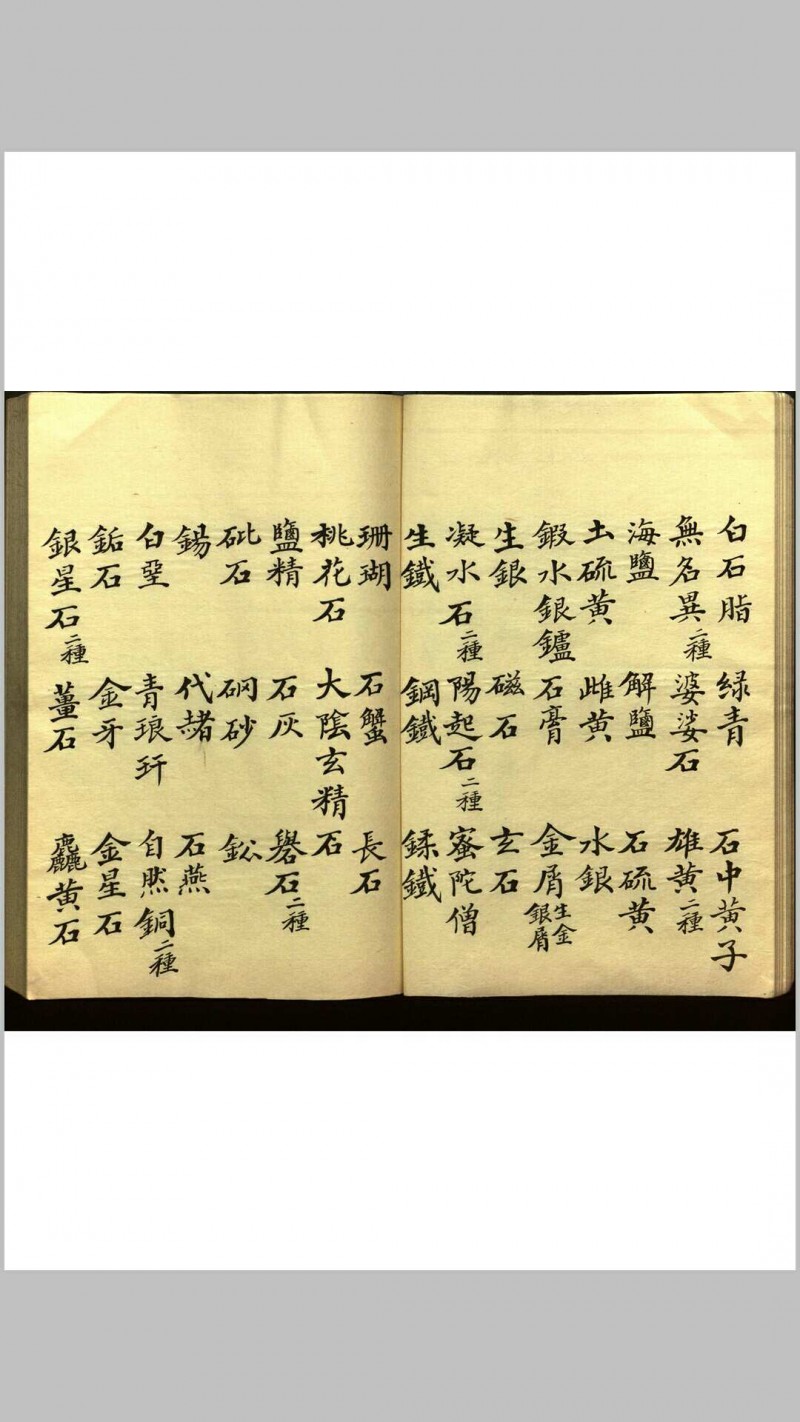 白石脂 緑青 石中黄子
無名異二種 婆娑石 雄黄二種
海鹽 解鹽 石硫黄
土硫黄 雌黄 水銀
鍜水銀鑪 石膏 金屑生金銀屑
生銀 磁石 玄石
凝水石二種 陽起石二種 蜜陀僧
生鐵 鋼鐵 鍒鐵
珊瑚 石蟹 長石
桃花石 大陰玄精石
鹽精 石灰 礜石二種
砒石 硇砂 鈆
錫 代赭 石燕
白堊 青琅玕 自然銅二種
鉐石 金牙 金星石
銀星石二種 薑石 麤黄石